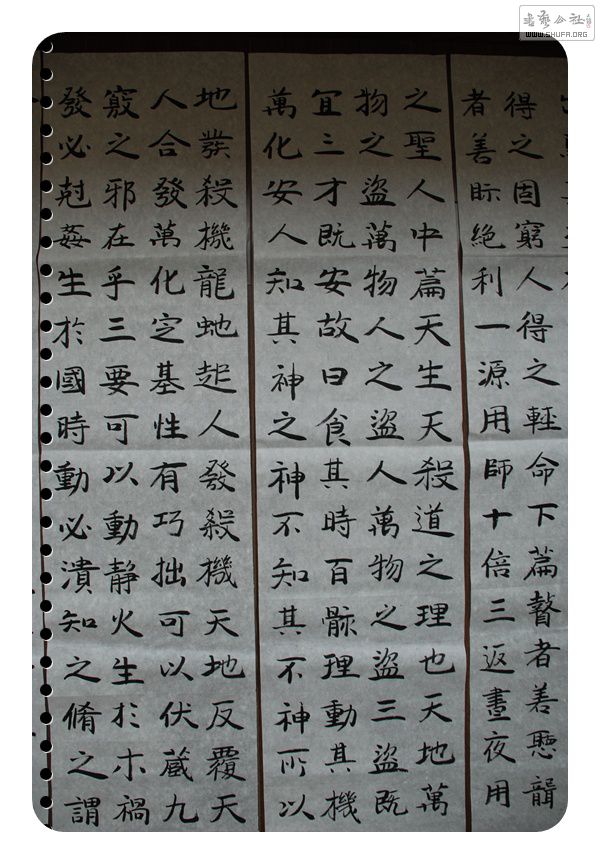 書藝公社
WWW.SHUFA.ORG
得之固窮人得之輕命下篇瞽者善聽聾
者善眎絕利一源用師十倍三返晝夜用
之聖人中篇天生天殺道之理也天地萬
物之盜萬物人之盜人萬物之盜三盜既
宜三才既安故曰食其時百骸理動其機
萬化安人知其神之神不知其不神所以
地發殺機龍虵起人發殺機天地反覆天
人合發萬化定基性有巧拙可以伏藏九
竅之邪在乎三要可以動靜火生於木禍
發必尅姦生於國時動必潰知之脩之謂